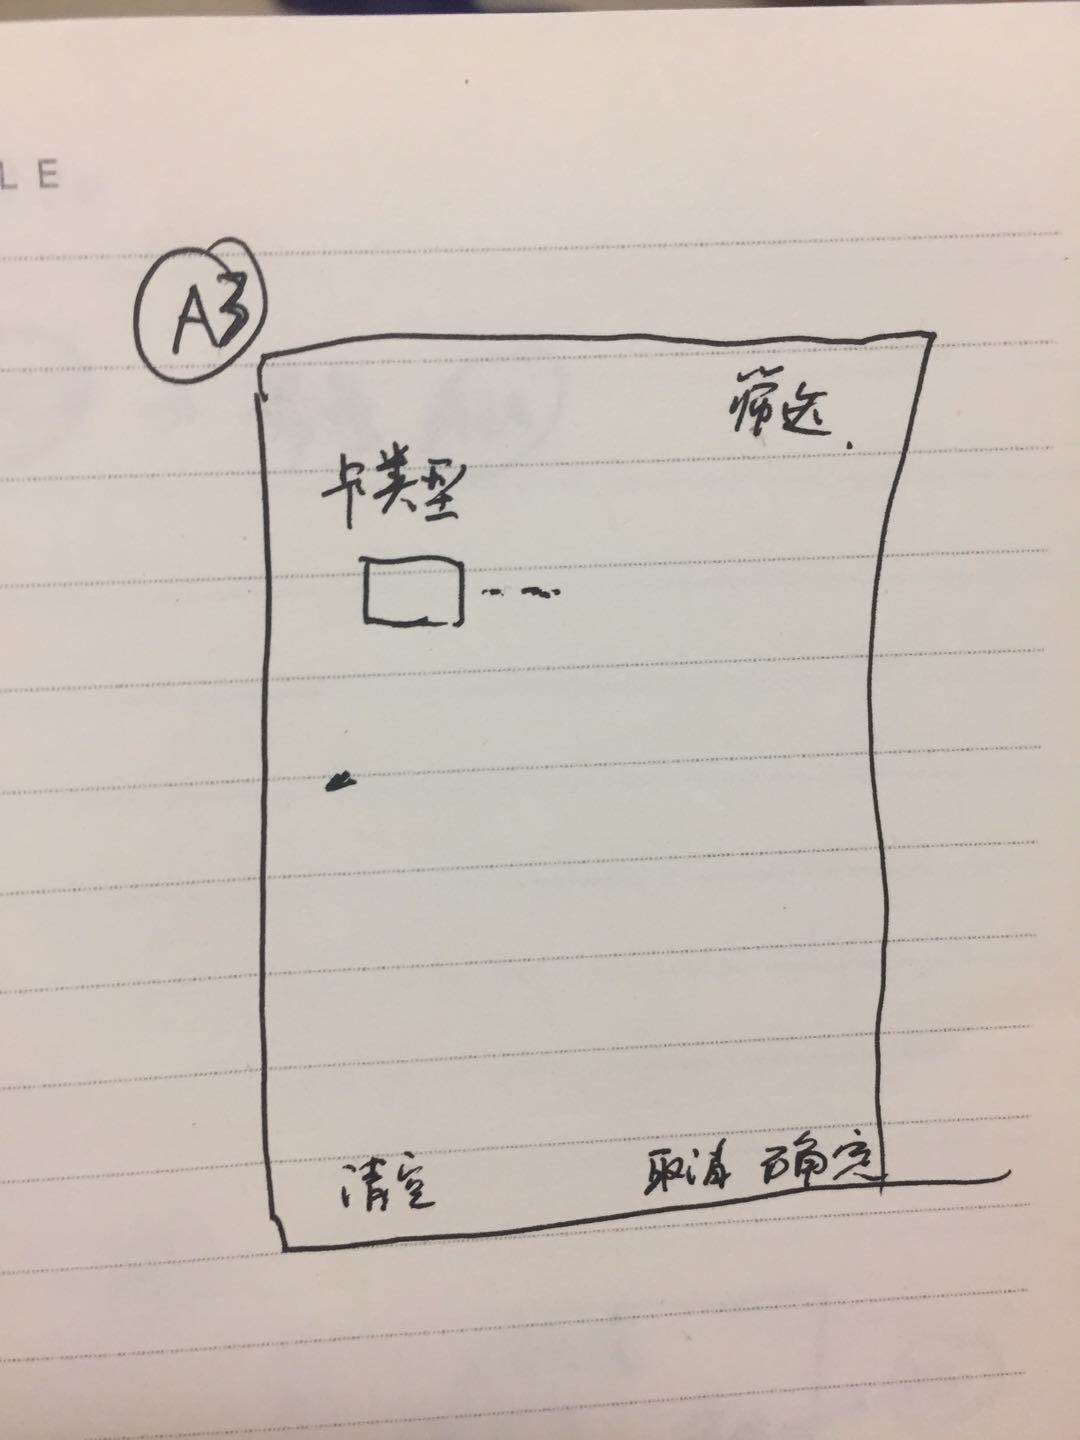 LE
A3
筛选
卡类型
清空 取消 确定